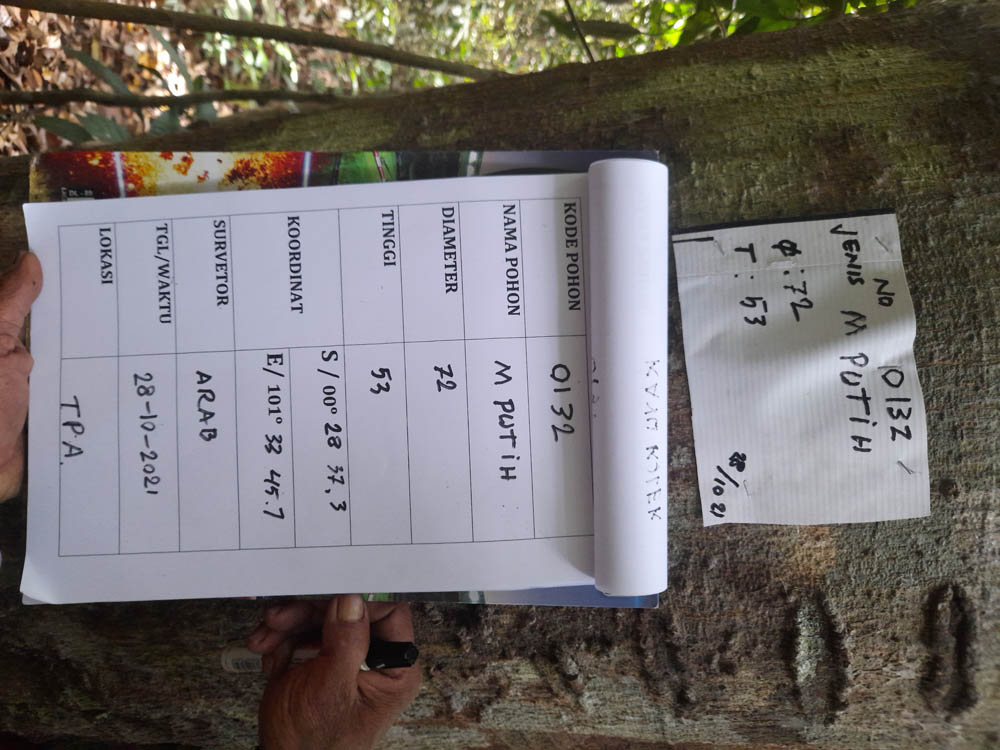 NO 10132
JENIS M PUTiH
φ : 72
T : 53
28/10 21
KAYU KOLEK
KODE POHON 0132
NAMA POHON M PUTiH
DIAMETER 72
TINGGI 53
KOORDINAT
S / 00° 28 37,3
E/ 101° 33 45.7
SURVETOR ARAB
TGL/WAKTU 28-10-2021
LOKASI TPA.